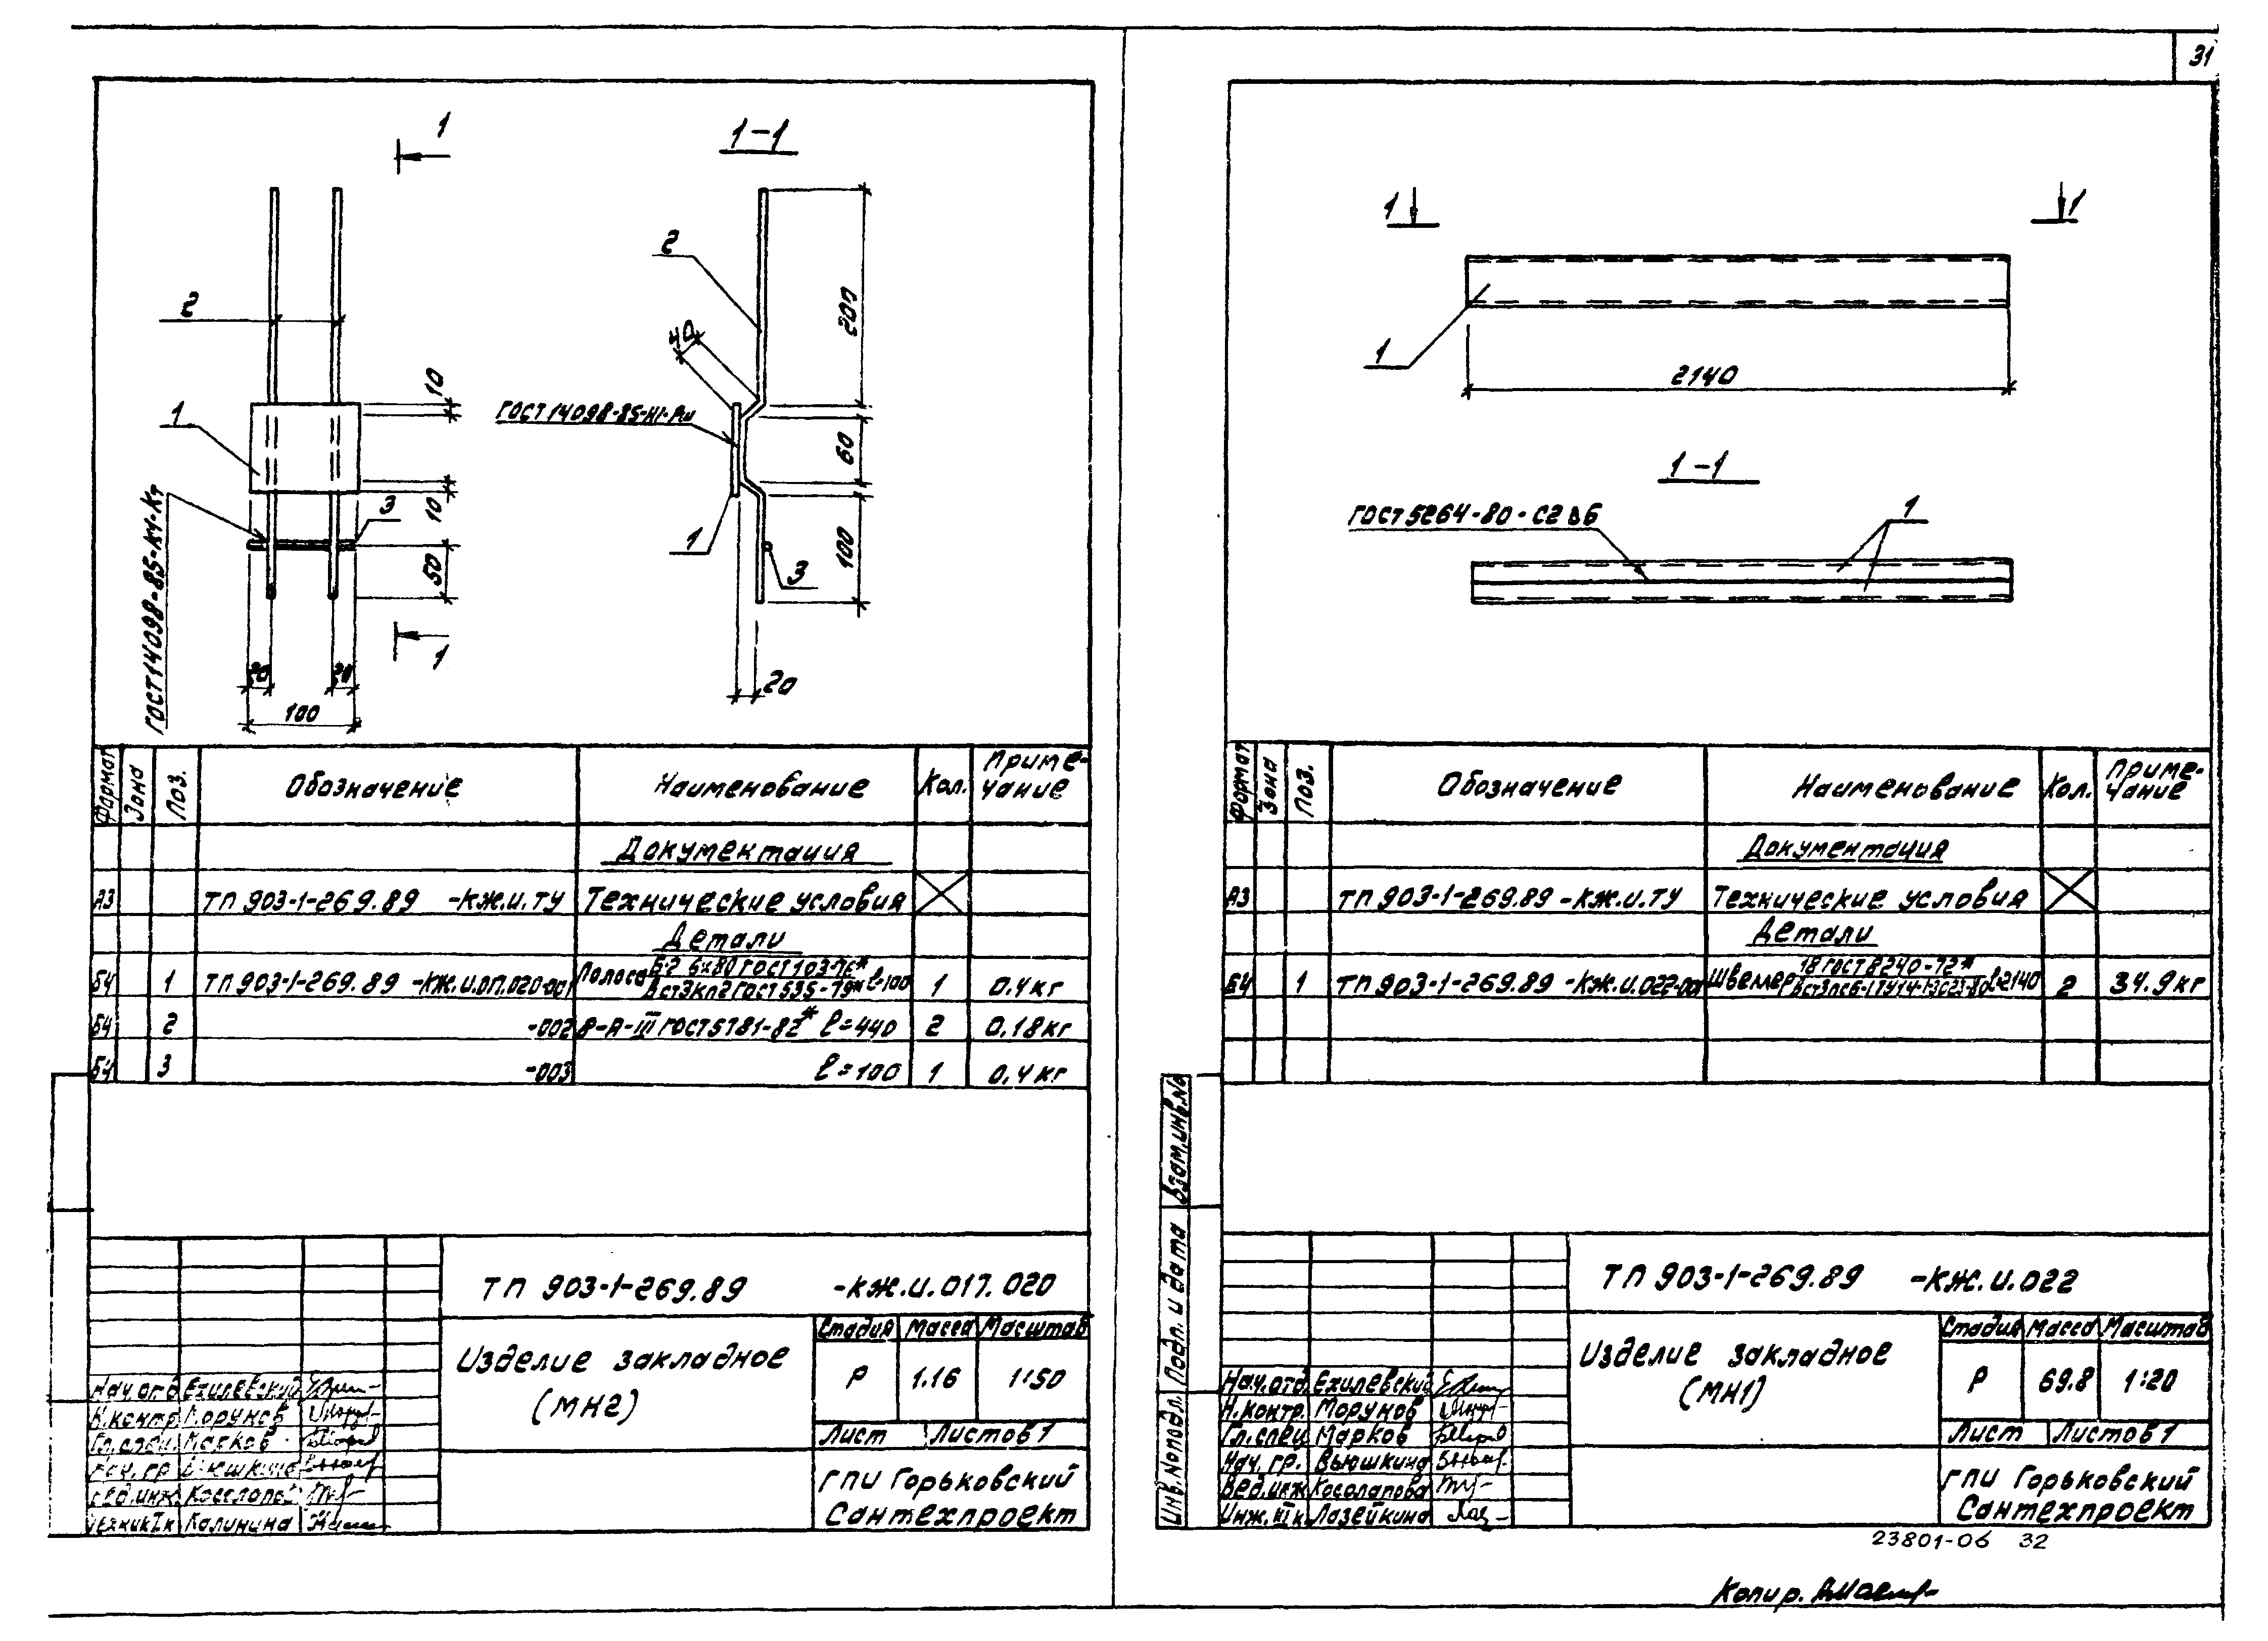 31
1
1-1
2
2
200
40
10
1
ГОСТ 14098-85-Н1-Рш
60
10
3
1
100
3
50
ГОСТ 14098-85-К4-Кт
1
20
20
20
100
Формат Зона Поз. Обозначение Наименование Кол. Приме-
чание
Документация
А3 ТП 903-1-269.89 -КЖ.И.ТУ Технические условия
Детали
БЧ 1 ТП 903-1-269.89 -КЖ.И.017.020-001 Полоса Б-2 6х80 ГОСТ 103-76* l=100 1 0.4 кг
ВСт3кп2 ГОСТ 535-79*
БЧ 2 -002 8-А-III ГОСТ 5781-82* l=440 2 0,18 кг
БЧ 3 -003 l=100 1 0,4 кг
ТП 903-1-269.89 -КЖ.И.017.020
Изделие закладное
(МН2)
Стадия Масса Масштаб
Р 1.16 1:50
Лист Листов 1
ГПИ Горьковский
Сантехпроект
Нач.отд Ехилевский
Н.контр Морунов
Гл.спец. Марков
Нач.гр. Вьюшкина
Вед.инж. Косолапова
Калинина
1 1
1
2140
1-1
ГОСТ 5264-80-С2 Δ6
1
Формат Зона Поз. Обозначение Наименование Кол. Приме-
чание
Документация
А3 ТП 903-1-269.89 -КЖ.И.ТУ Технические условия
Детали
БЧ 1 ТП 903-1-269.89 -КЖ.И.022-001 Швеллер 18 ГОСТ 8240-72* l=2140 2 34.9 кг
Взам.инв.№
Подп. и дата
Инв.№ подл.
ТП 903-1-269.89 -КЖ.И.022
Изделие закладное
(МН1)
Стадия Масса Масштаб
Р 69.8 1:20
Лист Листов 1
ГПИ Горьковский
Сантехпроект
Нач.отд. Ехилевский
Н.контр. Морунов
Гл.спец Марков
Нач. гр. Вьюшкина
Вед.инж Косолапова
Инж. III к. Лазейкина
23801-06 32
Копир.